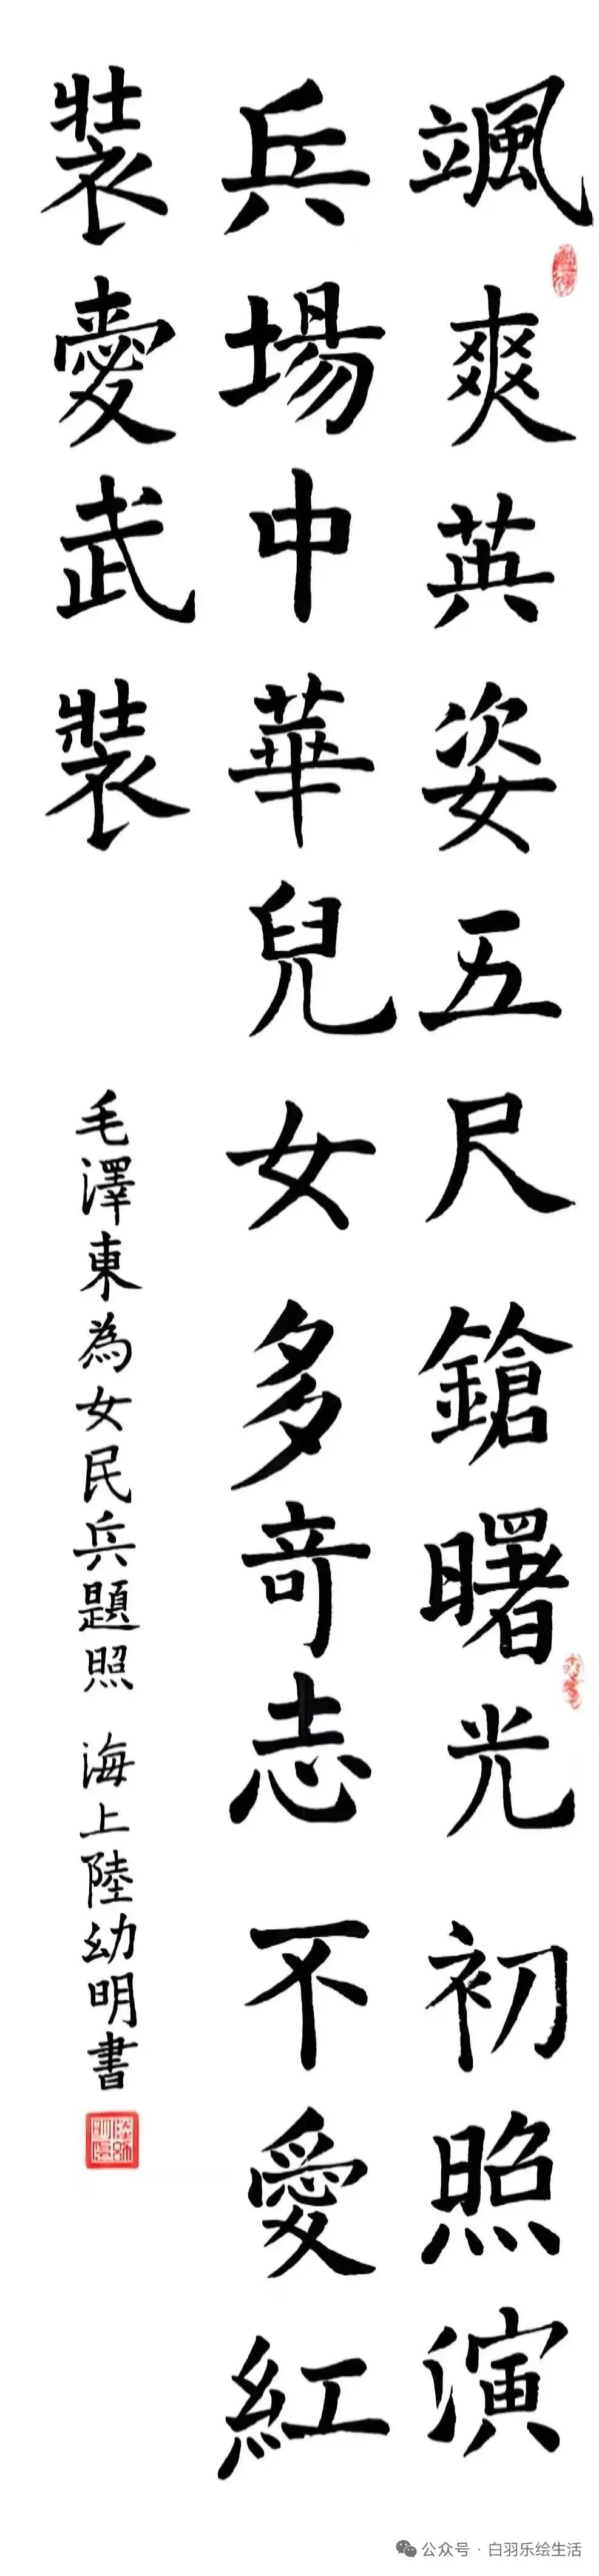 颯爽英姿五尺鎗曙光初照演
兵場中華兒女多奇志不愛紅
裝愛武裝
毛澤東為女民兵題照 海上陸幼明書
公众号 · 白羽乐绘生活